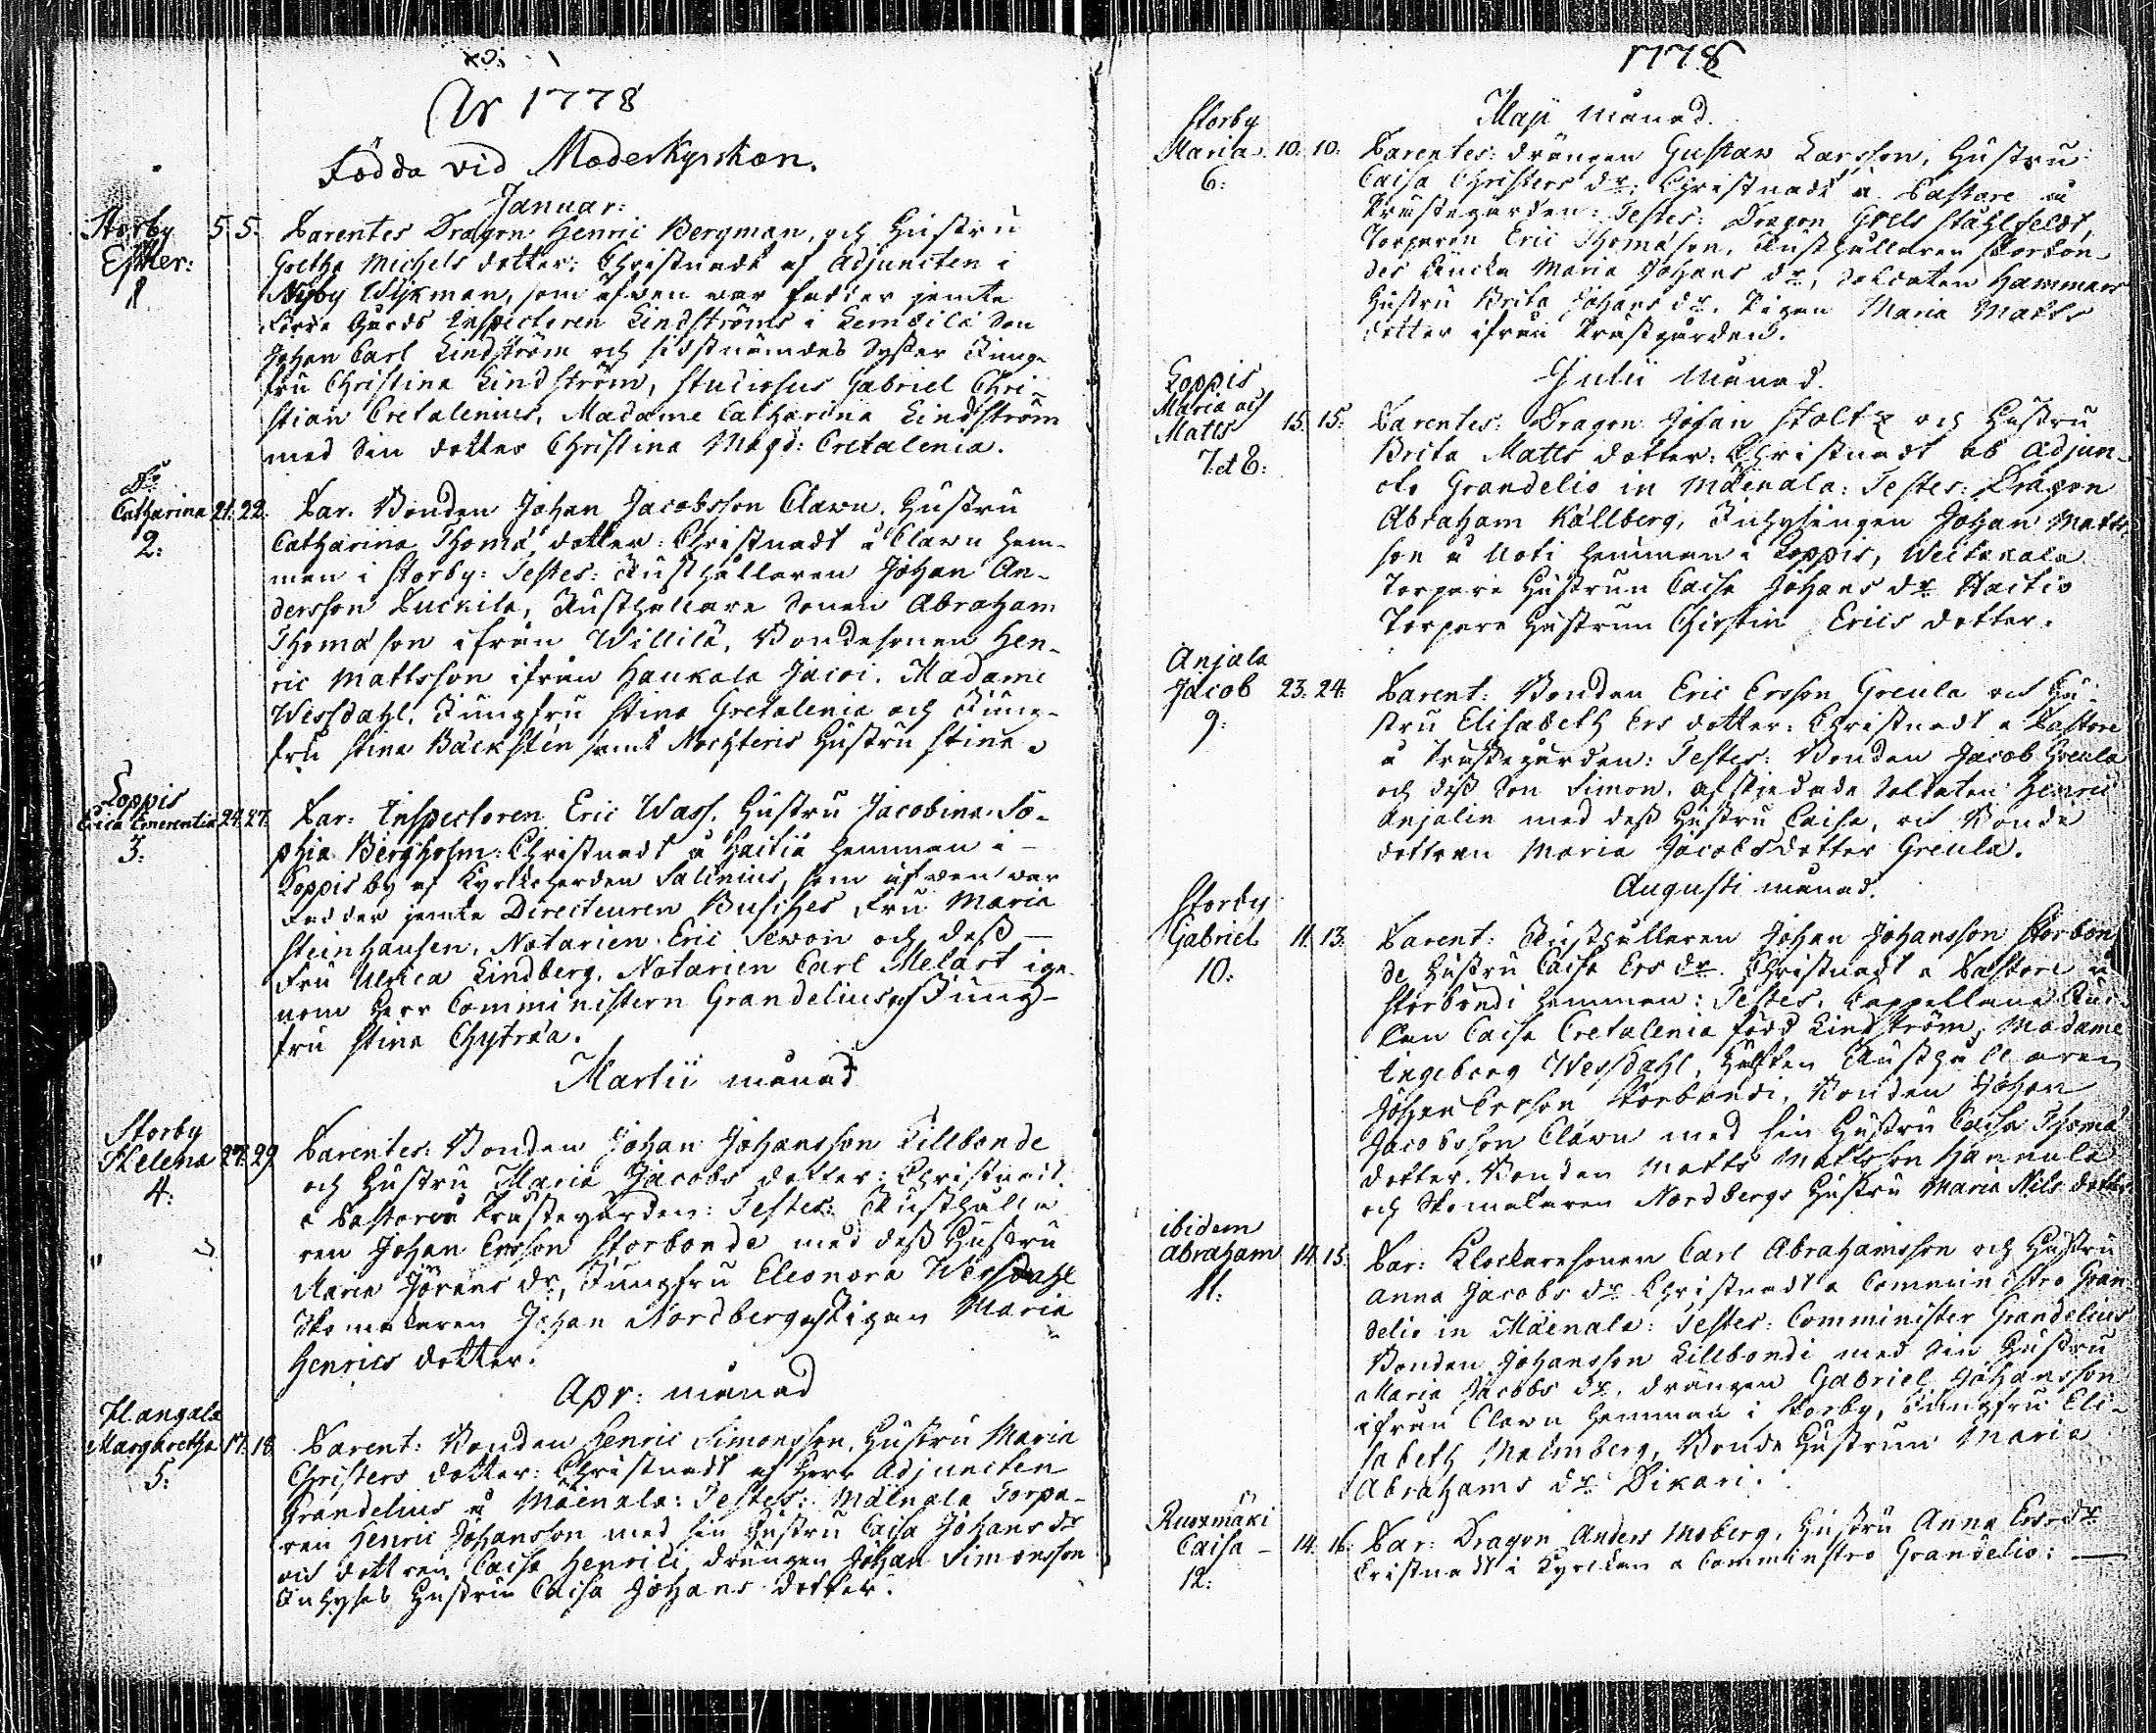 År 1778
Födda vid Moderkyrckan.
Januar:
Storby 5. 5. Parentes Dragon Henric Bergman, och Hustru
Esther: Gretha Michels dotter: Christnadt af Adjuncten i
1 Nyby Wijkman, som äfwen war fadder jemte
Gårds Inspectoren Lindströms i Lembilä Son
Johan Carl Lindström och sidstnämdes Syster Jung-
fru Christina Lindström, Studiosus Gabriel Chri-
stian Cretalenius, Madame Catharina Lindström
med Sin dotter Christina Magd: Cretalenia.
Do
Catharina 21. 22. Par. Bonden Johan Jacobsson Clawu, Hustru
2: Catharina Thomæ dotter: Christnadt å Clawu hem-
man i Storby: Testes: Rusthållaren Johan An-
dersson Luckila, Rusthållare Sonen Abraham
Thomæson ifrån Willilä, Bondesonen Hen-
ric Mattsson ifrån Haukala Jacoi. Madame
Wessdahl, Jungfru Stina Cretalenia och Jung-
fru Stina Bäcksten samt Hustru Stina
Loppis
Erica Emerentia 24. 27. Par: Inspectoren Eric Wass, Hustru Jacobina So-
3: phia Bergholm: Christnadt å Haitia hemman i
Loppis by af Kyrckoherden Salenius, som äfwen war
Fadder jemte Directeuren Busches Fru Maria
Steinhausen, Notarien Eric Sewon och dess
Fru Ulrica Lindberg, Notarien Carl Melart ige-
nom Herr Comministern Grandelius och Jung-
fru Stina Chytræa.
Martii månad
Storby
Helena 27. 29 Parentes: Bonden Johan Johansson Lillbonde
4: och Hustru Maria Jacobs dotter: Christnadt
a Pastore å Prästegården: Testes: Rusthålla
ren Johan Ersson Storbonde med dess Hustru
Maria Jörans dr, Jungfru Eleonora Wessdahl
Skomakaren Johan Nordberg och Pigan Maria
Henrics dotter.
Apr: månad
Hangala
Margaretha 17. 18. Parent: Bonden Henric Simonsson, Hustru Maria
5: Christers dotter: Christnadt af Herr Adjuncten
Grandelius å Mäenala: Testes: Mäenala Torpa-
ren Henric Johansson med sin Hustru Caisa Johans dr
och dottren Caisa Henrici, drängen Johan Simonsson
Inhyses Hustrun Caisa Johans dotter.
1778
Maji månad.
Storby
Maria 10. 10. Parentes: drängen Gustaw Larsson, Hustru
6: Caisa Christers dr: Christnadt a Pastore å
Prästegården: Testes: Dragon Grels Ståhlfeldt,
Torparen Eric Thomæson, Rusthållaren Storbon-
des Enka Maria Johans dr, Soldaten Hammars
Hustru Brita Johans dr. Pigan Maria Matts
dotter ifrån Prästgården.
Julii månad.
Loppis
Maria och
Matts 15. 15. Parentes: Dragon Johan Stolt och Hustru
7 et 8: Brita Matts dotter: Christnadt ab Adjun-
cto Grandelio in Mäenala: Testes: Dragon
Abraham Källberg, Inhysingen Johan Matts-
son å Uoti hemman i Loppis,
Torpare Hustrun Caisa Johans dr Haitio
Torpare Hustrun Chirstin Erics dotter.
Anjala
Jacob 23. 24. Parent: Bonden Eric Ersson Greula och Hu-
9: stru Elisabeth Ers dotter: Christnadt a Pastore
å Prästegården: Testes: Bonden Jacob Greula
och dess Son Simon, afskjedade Soldaten Henric
Anjalin med dess Hustru Caisa, och Bonde
dottren Maria Jacobsdotter Greula.
Augusti månad.
Storby
Gabriel 11. 13. Parent: Rusthållaren Johan Johansson Storbon
10: de Hustru Caisa Ers dr. Christnadt a Pastore å
Storbondi hemman: Testes: Cappellans En-
kan Caisa Cretalenia född Lindström, Madame
Ingeborg Wessdahl, Rusthållaren
Johan Ersson Storbondi, Bonden Johan
Jacobsson Clawu med sin Hustru Caisa Thomæ
dotter. Bonden Matts Mattsson Hannula
och Skomakaren Nordbergs Hustru Maria Nils dotter
ibidem
Abraham 14. 15. Par: Klockaresonen Carl Abrahamsson och Hustru
11: Anna Jacobs dr Christnadt a Comministro Gran
delio in Mäenala: Testes: Comminister Grandelius
Bonden Johansson Lillbondi med Sin Hustru
Maria Jacobs dr, drängen Gabriel Johansson
ifrån Clawu hemman i Storby, Jungfru Eli-
sabeth Malmberg, Bonde Hustrun Maria
Abrahams dr Pikari.
Ruoxmäki
Caisa – 14. 16. Par: Dragon Anders Moberg, Hustru Anna Ersdr
12: Cristnadt i Kyrckan a Comministro Grandelio: —